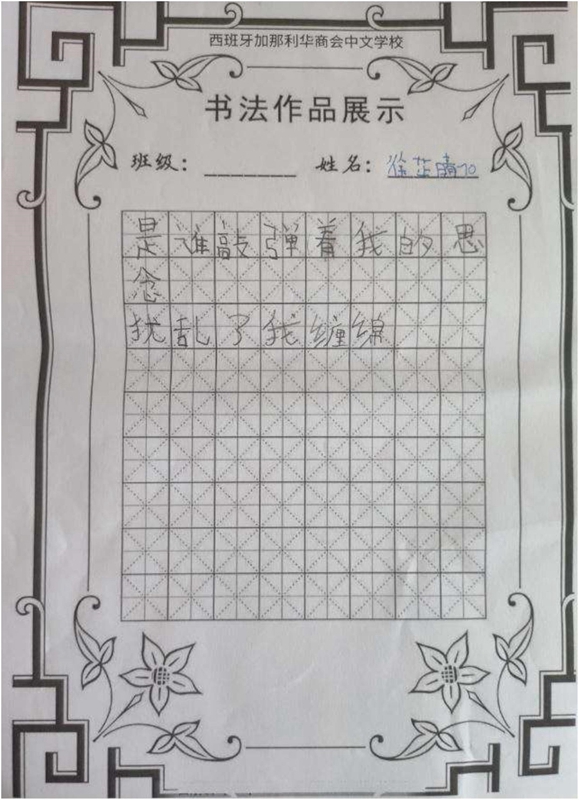 西班牙加那利华商会中文学校
书法作品展示
班级： 姓名：徐芷晴
是谁敲弹着我的思
念
扰乱了我缠绵